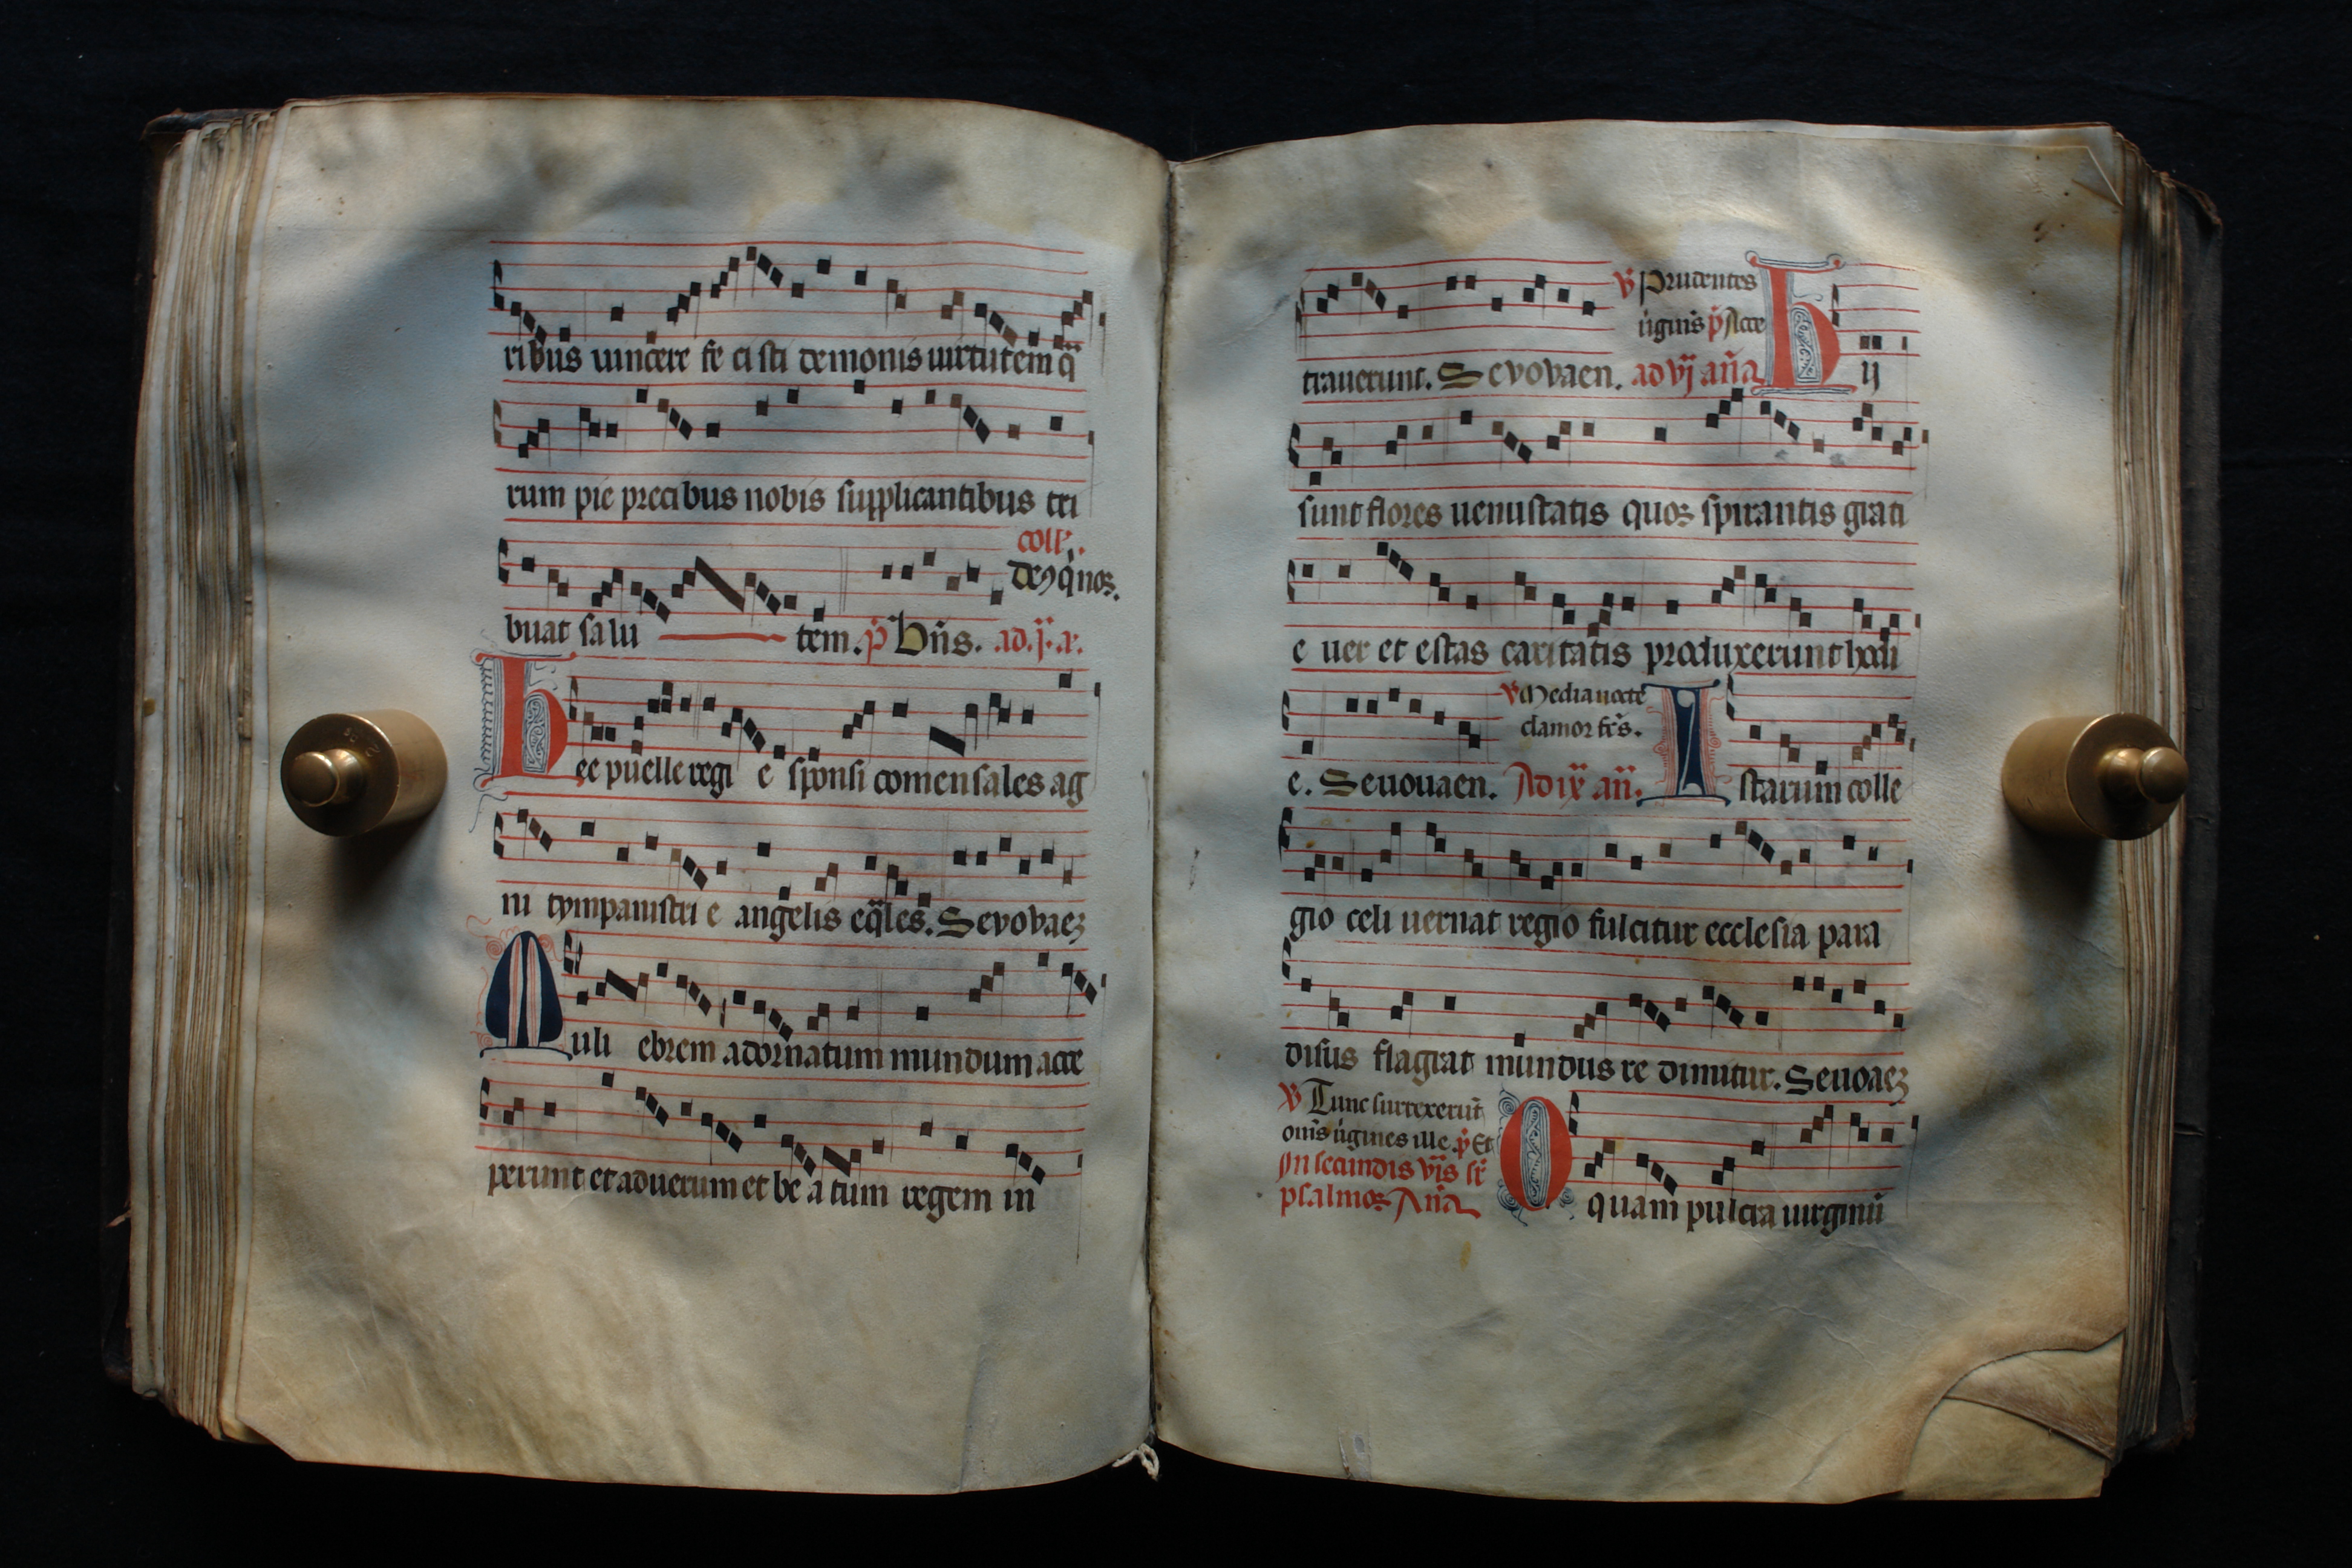 ribus uincere fe ci sti demonis uirtutem q̄
rum pie precibus nobis supplicantibus tri
coll'.
deꝰ q̇ noꝝ.
buat salu tem. p̄ Bn̄s. .ad.j.a.
hee puelle regi e sponsi comensales ag
ni tympanistri e angelis eq̄les. Sevovaeꝫ
Muli ebrem adornatum mundum acce
perunt et aduerum et be a tum regem in
℣ Prudentes
ú̇gin̄s p̄ Acce
trauerunt. Sevovaen. ad vj an̄a hij
sunt flores uenustatis quoꝝ spirantis grati
e uer et estas caritatis produxerunt hodi
℣ Media nocte
clamor fc̄s.
e. Seuouaen. Ad ix an̄. Istarum colle
gio celi uernat regio fulcitur ecclesia para
disus flagrat mundus re dimitur. Seuoaeꝫ
℣ Tunc surrexerūt
om̄s ú̇gines ille p̄ Et
In secundis vīs sr̄
psalmoꝝ An̄a O quam pulcra uirginū